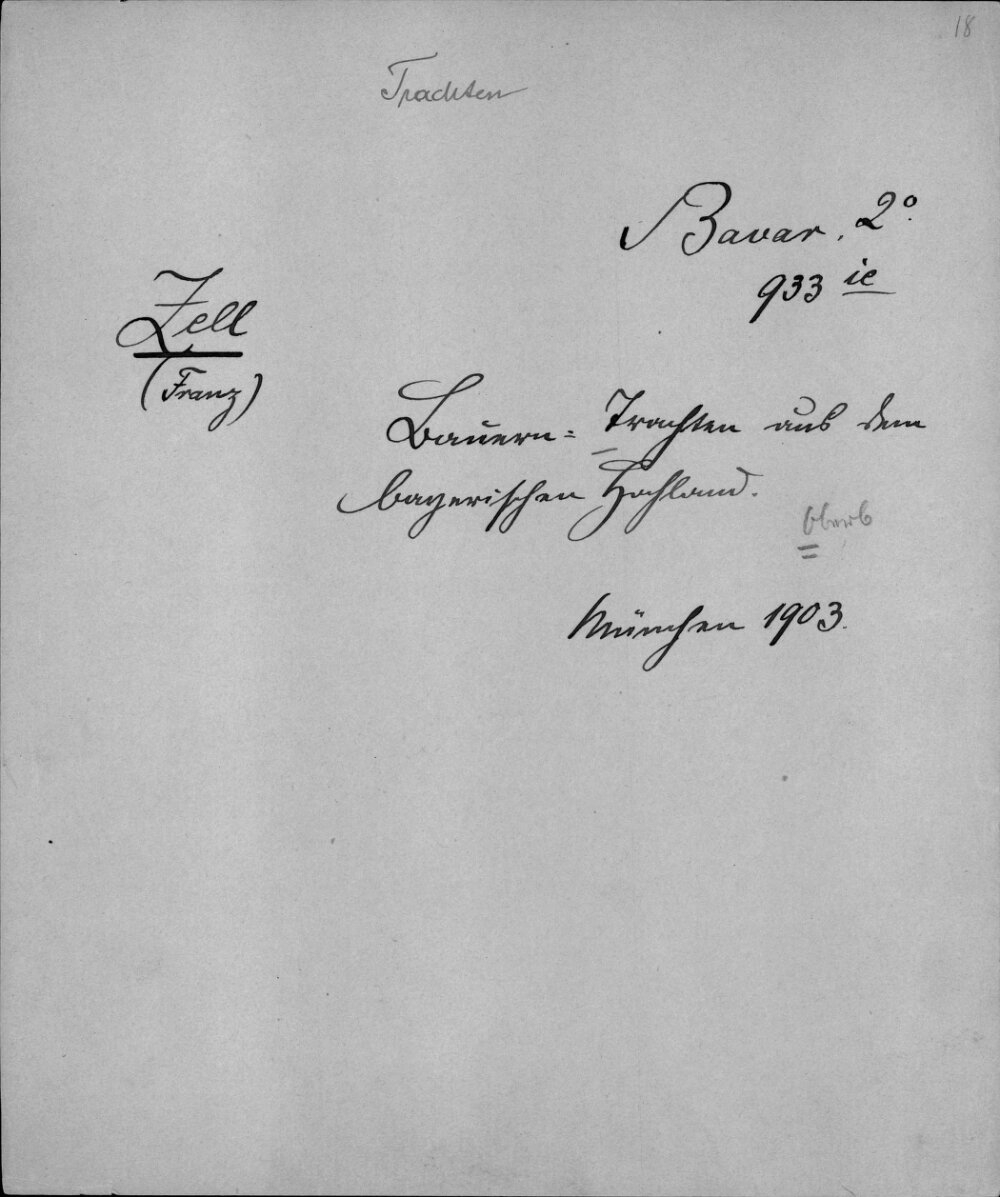 18
Trachten
Bavar. 2°.
933 ie
Zell
(Franz)
Bauern= Trachten aus dem
bayerischen Hochland.
Oberb
München 1903.